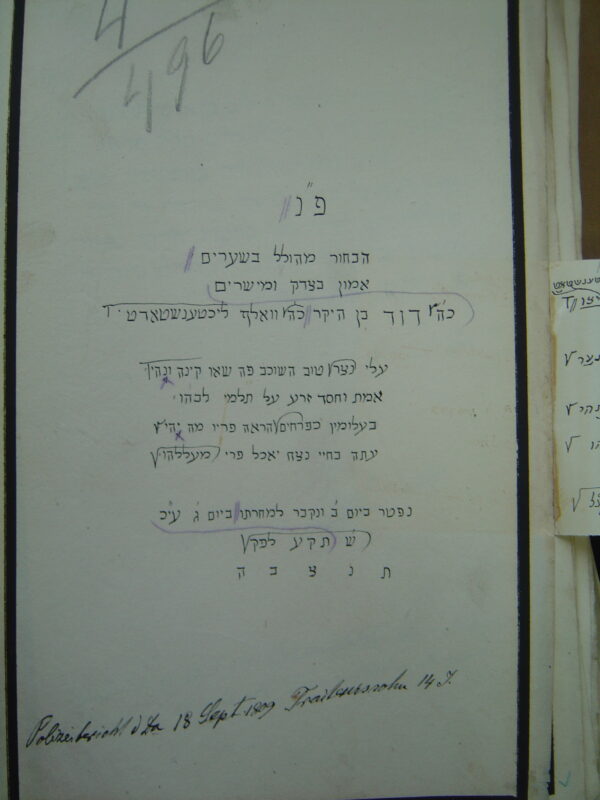 4
496
פ״נ
הבחור מהולל בשערים
אמון בצדק ומישרים
כה׳ דוד בן היקר כה׳ וואלף ליכטענשטאדט
עלי נצר טוב השוכב פה שאו קינה ונהי
אמת וחסד זרע על תלמי לבהו
בעלימין כפרחים הראה פריו מה יהי׳
יעתה בחיי נצח יאכל פרי מעללהו
נפטר ביום ב׳ ונקבר למחרתו ביום ג׳ עי״כ
ש תקע לפק
ת נ צ ב ה
Polizeibericht d Da 18 Sept 1809 14 J.